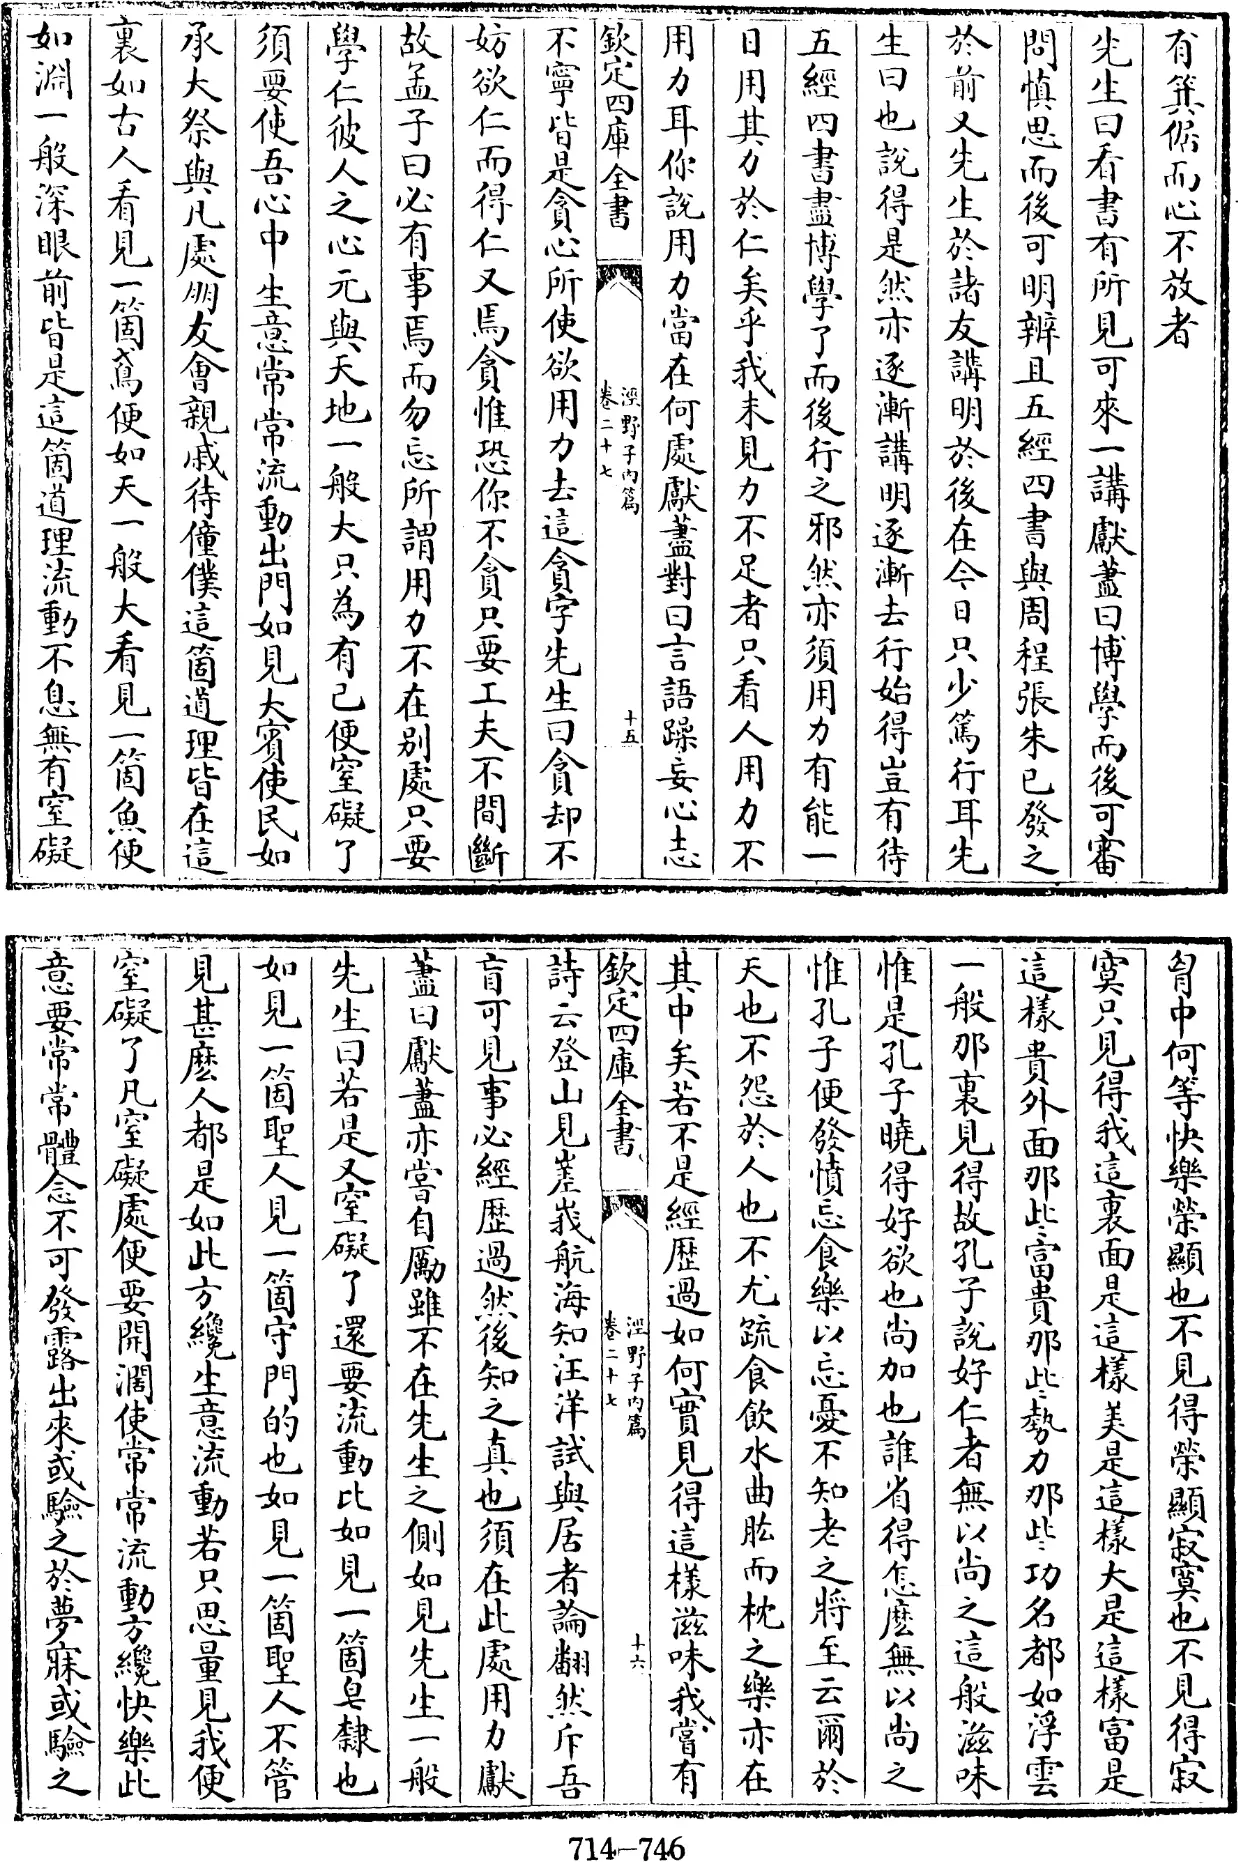 有箕倨而心不放者
先生曰看書有所見可來一講獻藎曰博學而後可審
問慎思而後可明辨且五經四書與周程張朱已發之
於前又先生於諸友講明於後在今日只少篤行耳先
生曰也說得是然亦逐漸講明逐漸去行始得豈有待
五經四書盡博學了而後行之邪然亦須用力有能一
日用其力於仁矣乎我未見力不足者只看人用力不
用力耳你說用力當在何處獻藎對曰言語躁妄心志
欽定四庫全書
涇野子內篇
卷二十七
十五
不寧皆是貪心所使欲用力去這貪字先生曰貪却不
妨欲仁而得仁又焉貪惟恐你不貪只要工夫不間斷
故孟子曰必有事焉而勿忘所謂用力不在别處只要
學仁彼人之心元與天地一般大只為有己便窒礙了
須要使吾心中生意常常流動出門如見大賓使民如
承大祭與凡處朋友會親戚待僮僕這箇道理皆在這
裏如古人看見一箇鳶便如天一般大看見一箇魚便
如淵一般深眼前皆是這箇道理流動不息無有窒礙
胷中何等快樂榮顯也不見得榮顯寂寞也不見得寂
寞只見得我這裏面是這樣美是這樣大是這樣富是
這樣貴外面那些富貴那些勢力那些功名都如浮雲
一般那裏見得故孔子說好仁者無以尚之這般滋味
惟是孔子曉得好欲也尚加也誰省得怎麽無以尚之
惟孔子便發憤忘食樂以忘憂不知老之將至云爾於
天也不怨於人也不尤疏食飲水曲肱而枕之樂亦在
其中矣若不是經歷過如何實見得這樣滋味我嘗有
欽定四庫全書
涇野子內篇
卷二十七
十六
詩云登山見嵳峩航海知汪洋試與居者論翻然斥吾
盲可見事必經歷過然後知之真也須在此處用力獻
藎曰獻藎亦嘗自勵雖不在先生之側如見先生一般
先生曰若是又窒礙了還要流動比如見一箇皂隸也
如見一箇聖人見一箇守門的也如見一箇聖人不管
見甚麽人都是如此方纔生意流動若只思量見我便
窒礙了凡窒礙處便要開濶使常常流動方纔快樂此
意要常常體念不可發露出來或驗之於夢寐或驗之
714-746